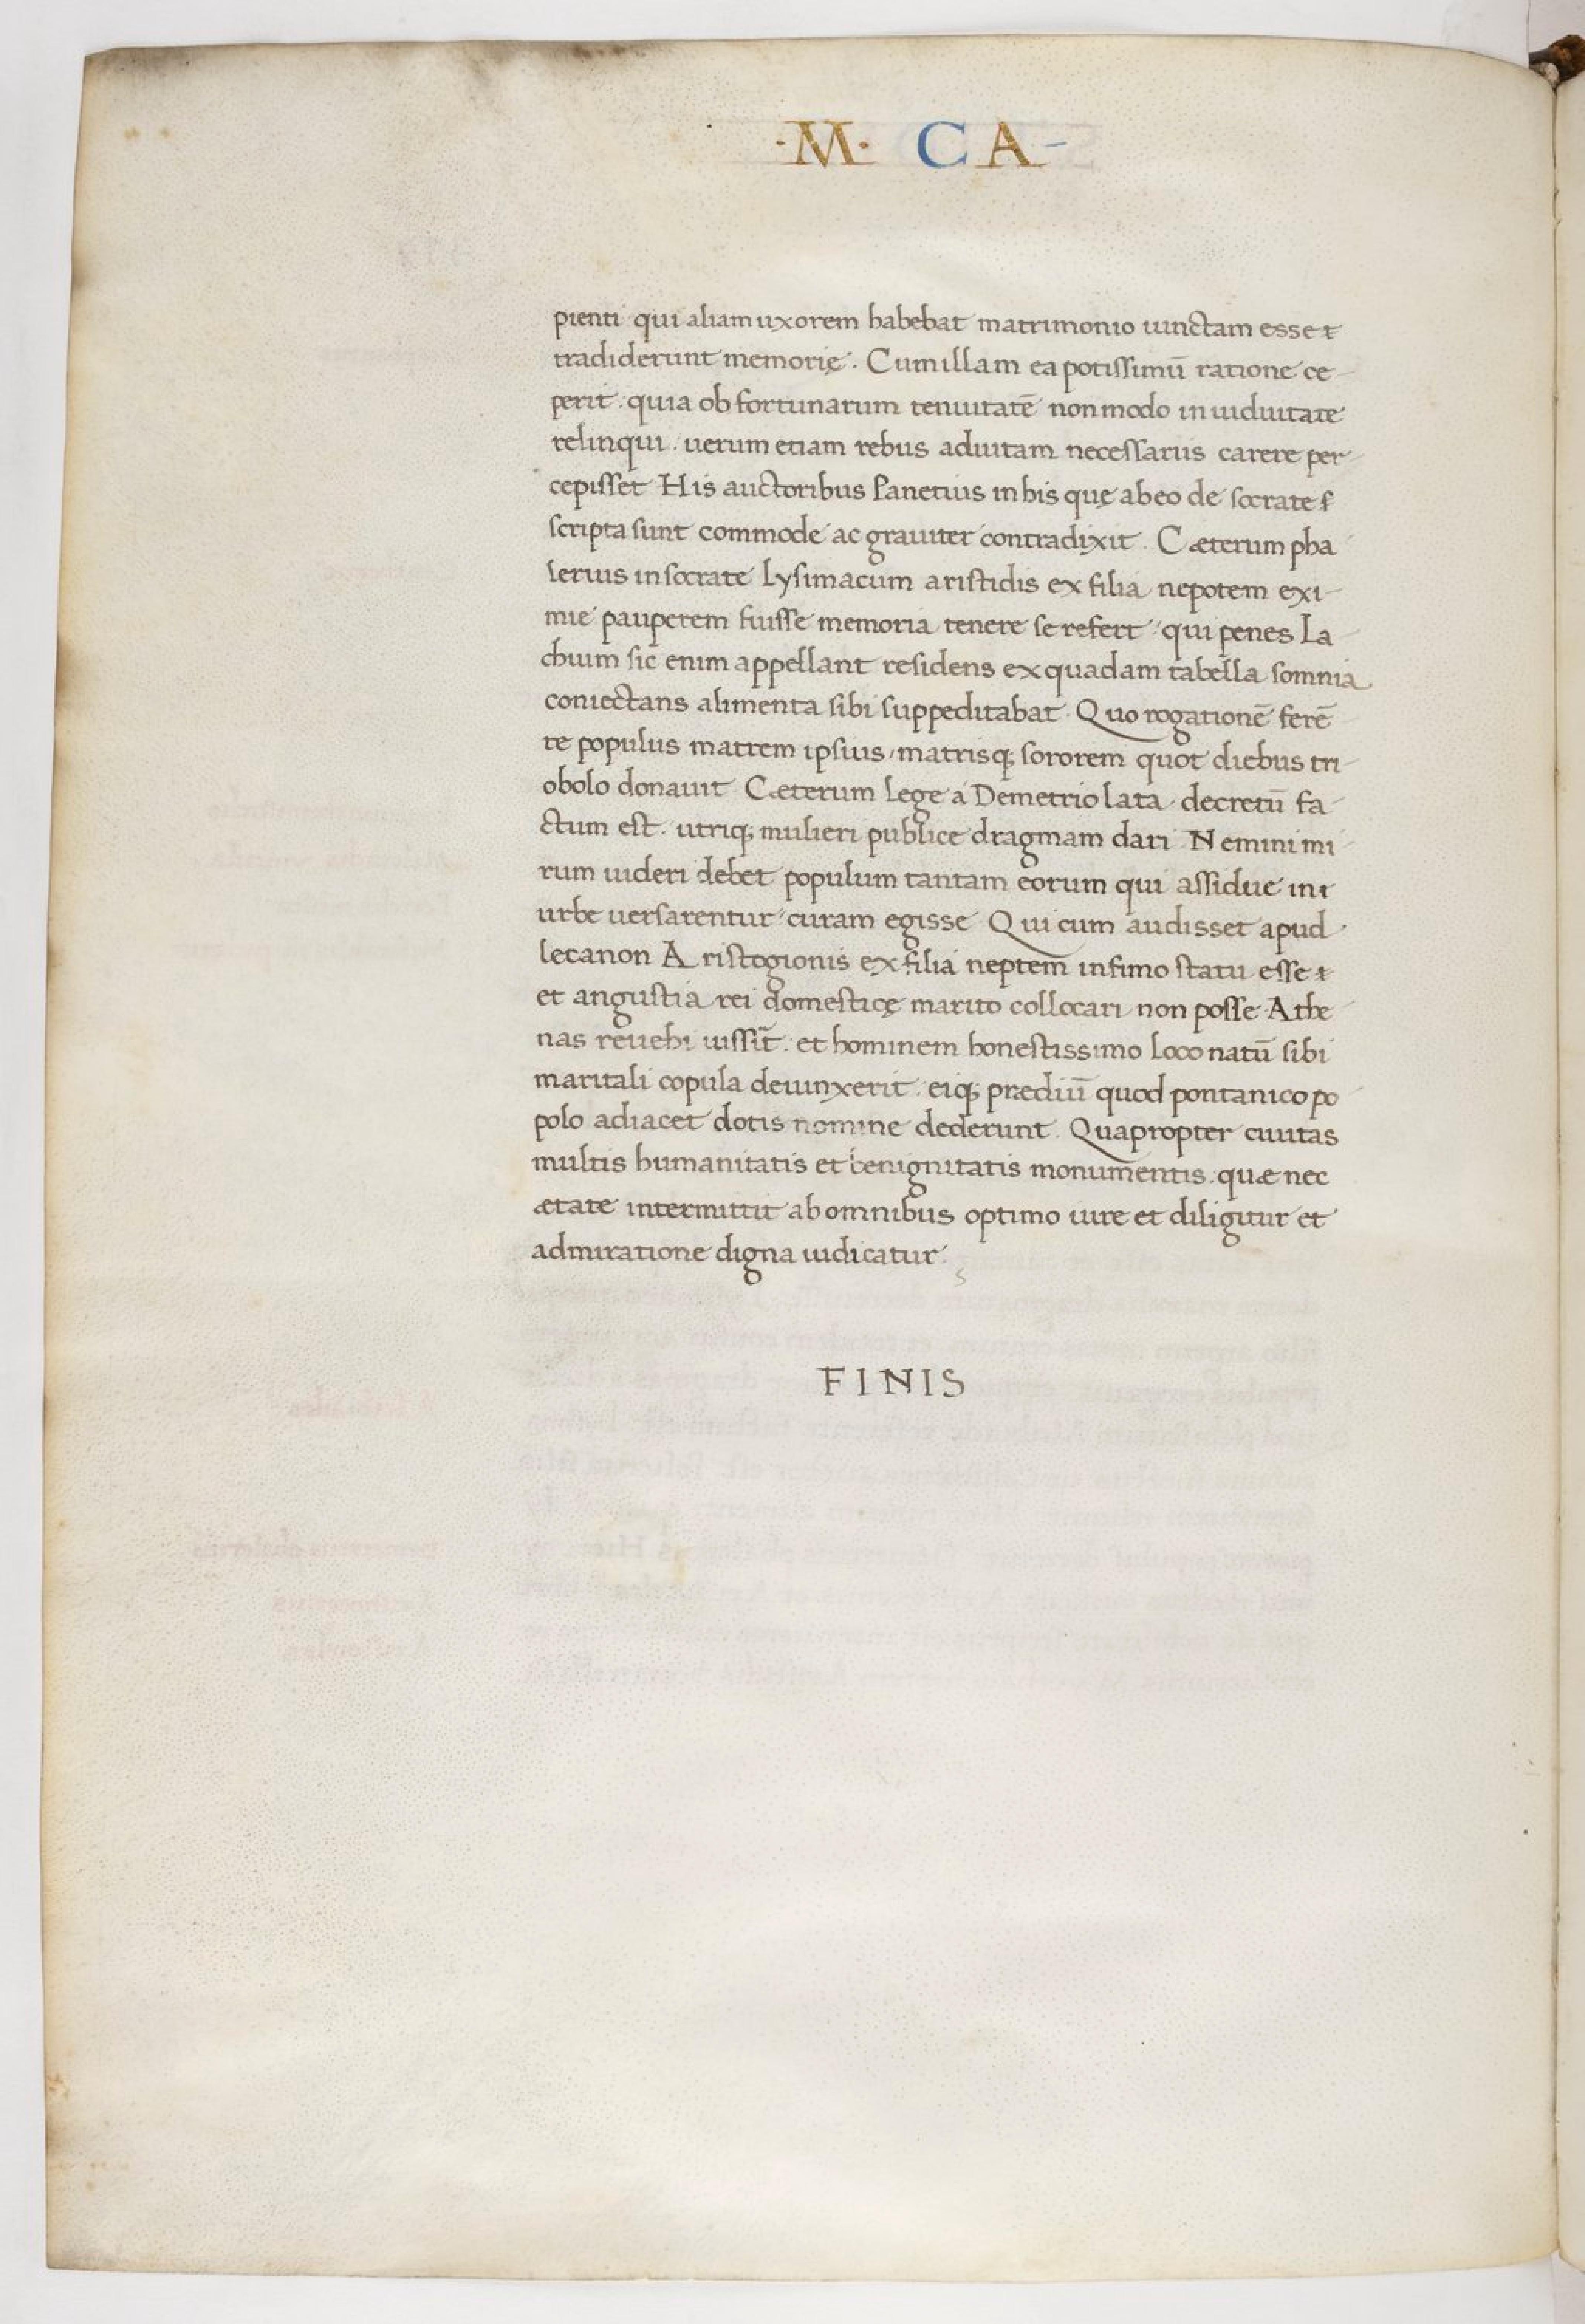 ·M· CA-
pienti qui aliam uxorem habebat matrimonio iunctam esse t
tradiderunt memorię. Cum illam ea potissimū ratione ce-
perit: quia ob fortunarum tenuitatē non modo in uiduitate
relinqui: uerum etiam rebus ad uitam necessariis carere per-
cepisset His auctoribus Panetius in his quę ab eo de socrate f
scripta sunt commode ac grauiter contradixit. Cæterum pha
lerius in socrate Lysimacum aristidis ex filia nepotem exi-
mie pauperem fuisse memoria tenere se refert: qui penes La-
chium sic enim appellant residens ex quadam tabella somnia
coniectans alimenta sibi suppeditabat. Quo rogationē ferē
te populus matrem ipsius, matrisq; sororem quot diebus tri-
obolo donauit Cæterum Lege a Demetrio lata. decretū fa-
ctum est. utriq; mulieri publice dragmam dari Nemini mi-
rum uideri debet populum tantam eorum qui assidue in t
urbe uersarentur: curam egisse. Qui cum audisset apud
lecanon Aristogionis ex filia neptem infimo statu esse t
et angustia rei domesticę marito collocari non posse. Athe-
nas reuehi iussit̄: et hominem honestissimo Loco natū sibi
maritali copula deuinxerit: eiq; prædiū quod pontanico po
polo adiacet dotis nomine dederunt. Quapropter ciuitas
multis humanitatis et benignitatis monumentis. quæ nec
ætate intermittit ab omnibus optimo iure et diligitur et
admiratione digna iudicatur.
FINIS